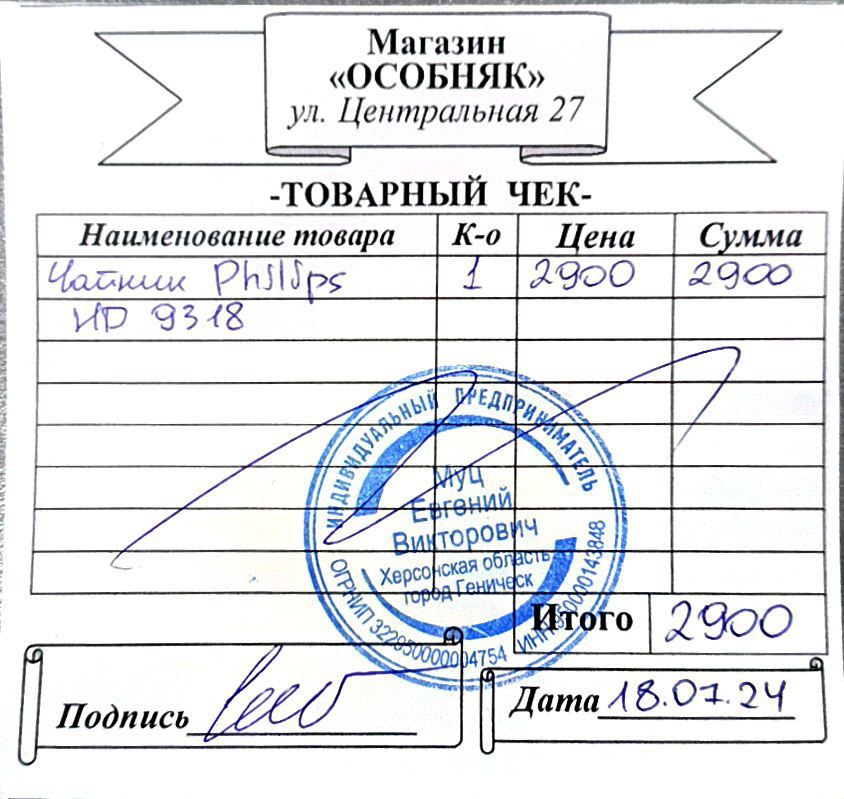 Магазин
«ОСОБНЯК»
ул. Центральная 27
-ТОВАРНЫЙ ЧЕК-
Наименование товара К-о Цена Сумма
Чайник Philips 1 2900 2900
HD 9318
ИНДИВИДУАЛЬНЫЙ ПРЕДПРИНИМАТЕЛЬ
Муц
Евгений
Викторович
Херсонская область
город Геническ
ОГРНИП 322950000004754 ИНН 950000143848
Итого 2900
Подпись
Дата 18.07.24